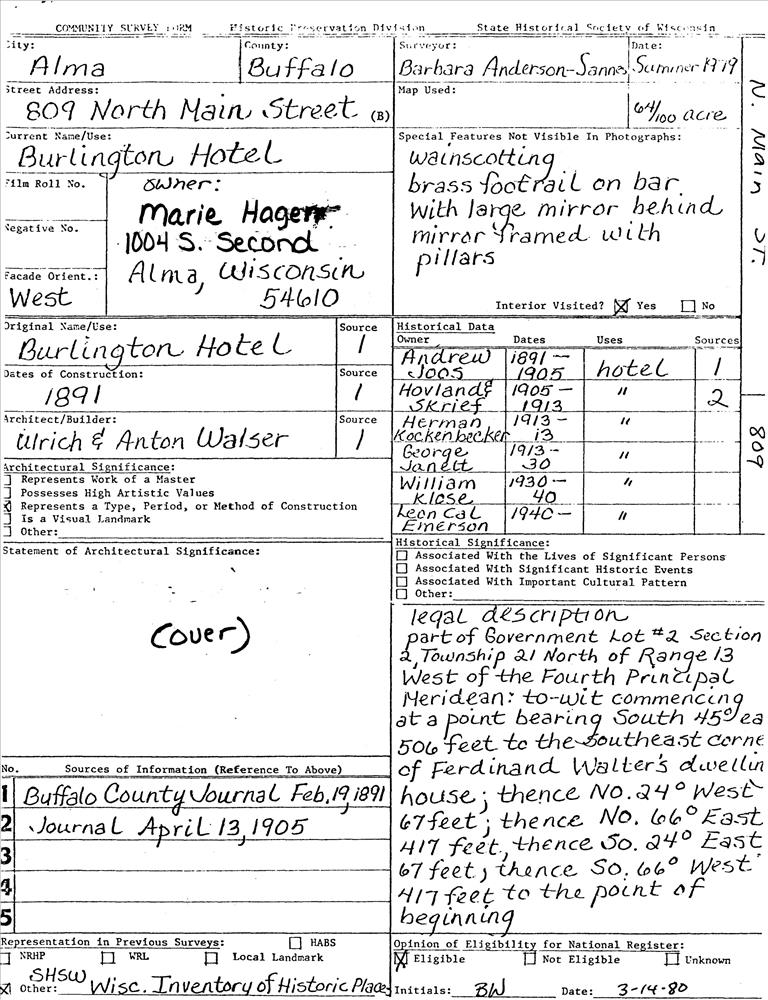 COMMUNITY SURVEY FORM Historic Preservation Division State Historical Society of Wisconsin
City: Alma
County: Buffalo
Surveyor: Barbara Anderson-Sannes
Date: Summer 1979
Street Address: 809 North Main Street (B)
Map Used:
64/100 acre
Current Name/Use: Burlington Hotel
Film Roll No.
Negative No.
Facade Orient.: West
owner:
Marie Hagen
1004 S. Second
Alma, Wisconsin
54610
Special Features Not Visible In Photographs:
wainscotting
brass footrail on bar
with large mirror behind
mirror framed with
pillars
Interior Visited? ☒ Yes ☐ No
N. Main St.
809
Original Name/Use: Burlington Hotel
Source 1
Dates of Construction: 1891
Source 1
Architect/Builder: Ulrich & Anton Walser
Source 1
Historical Data
Owner Dates Uses Sources
Andrew Joos 1891 — 1905 hotel 1
Hovland & Skrief 1905 — 1913 " 2
Herman Kockenbecker 1913 - 13 "
George Janett 1913 - 30 "
William Klose 1930 — 40 "
Leon Cal Emerson 1940 — "
Architectural Significance:
☐ Represents Work of a Master
☐ Possesses High Artistic Values
☒ Represents a Type, Period, or Method of Construction
☐ Is a Visual Landmark
☐ Other:
Historical Significance:
☐ Associated With the Lives of Significant Persons
☐ Associated With Significant Historic Events
☐ Associated With Important Cultural Pattern
☐ Other:
Statement of Architectural Significance:
(over)
legal description
part of Government Lot #2 Section
2, Township 21 North of Range 13
West of the Fourth Principal
Meridean: to-wit commencing
at a point bearing South 45° ea
506 feet to the southeast corne
of Ferdinand Walter's dwellin
house; thence NO. 24° West
67 feet; thence NO. 66° East
417 feet, thence So. 24° East
67 feet; thence So. 66° West
417 feet to the point of
beginning
No. Sources of Information (Reference To Above)
1 Buffalo County Journal Feb. 19, 1891
2 Journal April 13, 1905
3
4
5
Representation in Previous Surveys: ☐ HABS
☐ NRHP ☐ WRL ☐ Local Landmark
☒ Other: SHSW Wisc. Inventory of Historic Places
Opinion of Eligibility for National Register:
☒ Eligible ☐ Not Eligible ☐ Unknown
Initials: BW Date: 3-14-80